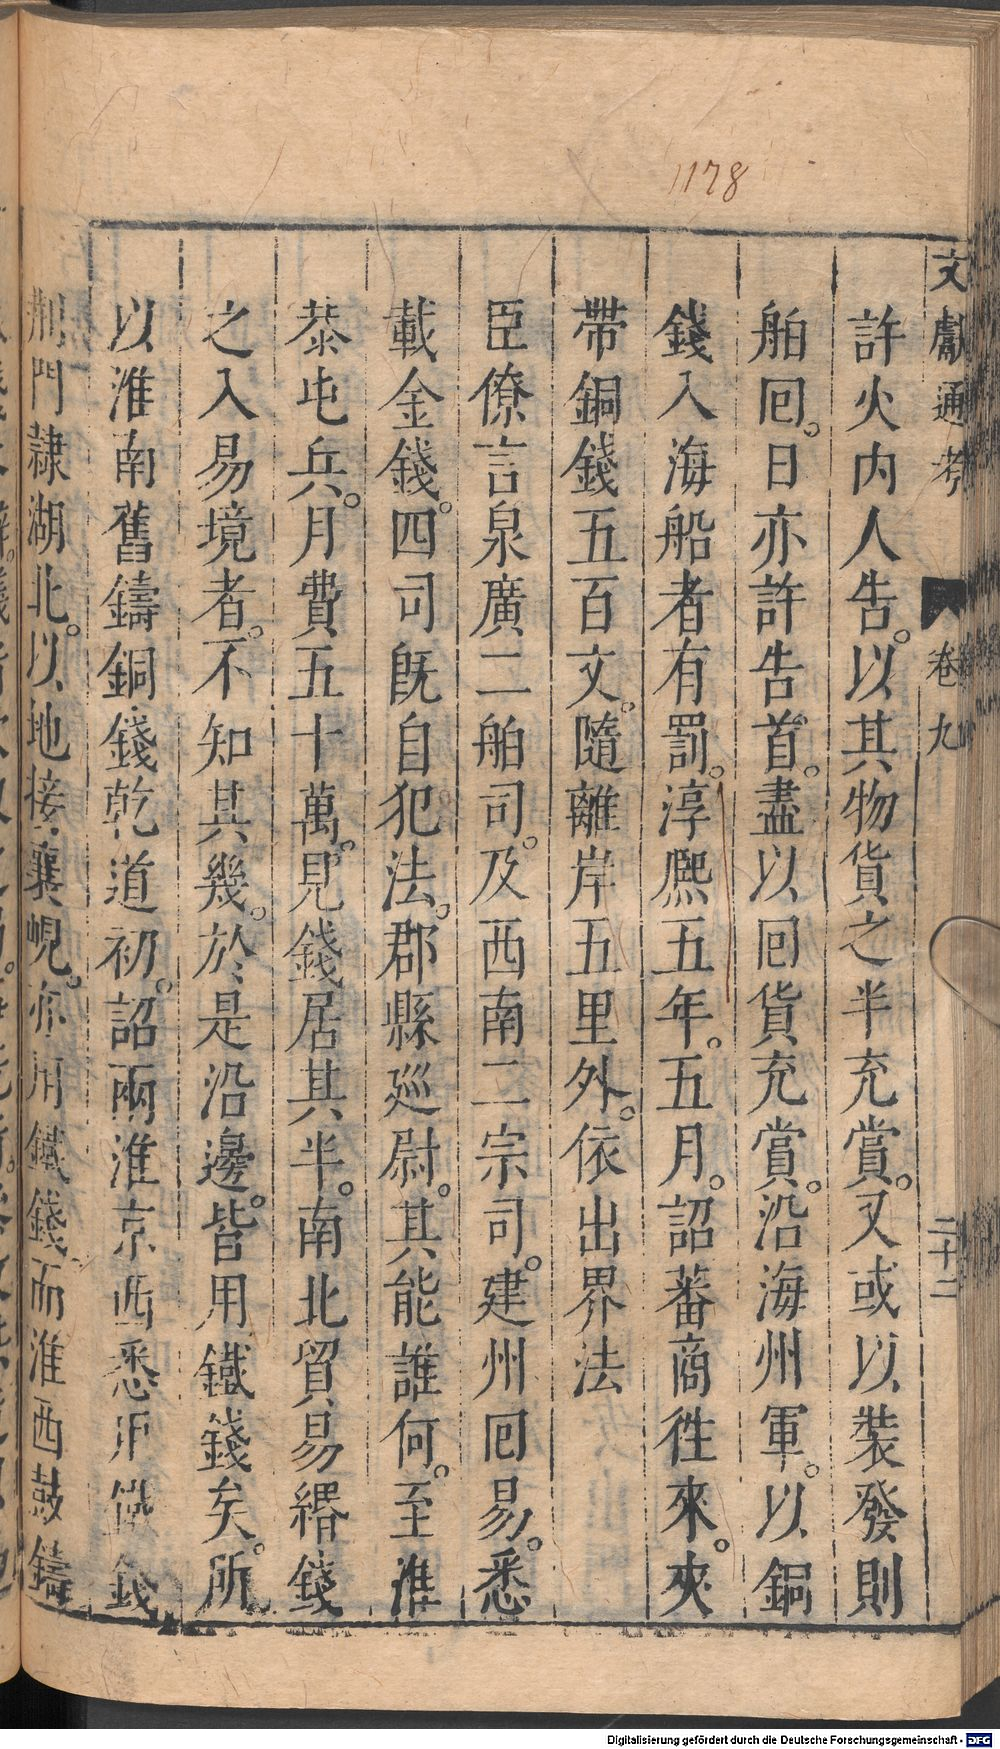 1178
文獻通考 卷九 二十二
許火內人告。以其物貨之半充賞。又或以裝發則
舶囘。日亦許告首。盡以囘貨充賞。沿海州軍。以銅
錢入海船者有罰。淳熈五年。五月。詔蕃商徃來。夾
帶銅錢五百文。隨離岸五里外。依出界法
臣僚言泉廣二舶司。及西南二宗司。建州囘易。悉
載金錢。四司旣自犯法。郡縣廵尉。其能誰何。至淮
㤗屯兵。月費五十萬。見錢居其半。南北貿易緡錢
之入易境者。不知其幾。於是沿邊。皆用鐵錢矣。所
以淮南舊鑄銅錢乾道初。詔兩淮京西悉用鐵錢
荆門隷湖北。以地接襄峴。亦用鐵錢而淮西鼓鑄
Digitalisierung gefördert durch die Deutsche Forschungsgemeinschaft - DFG